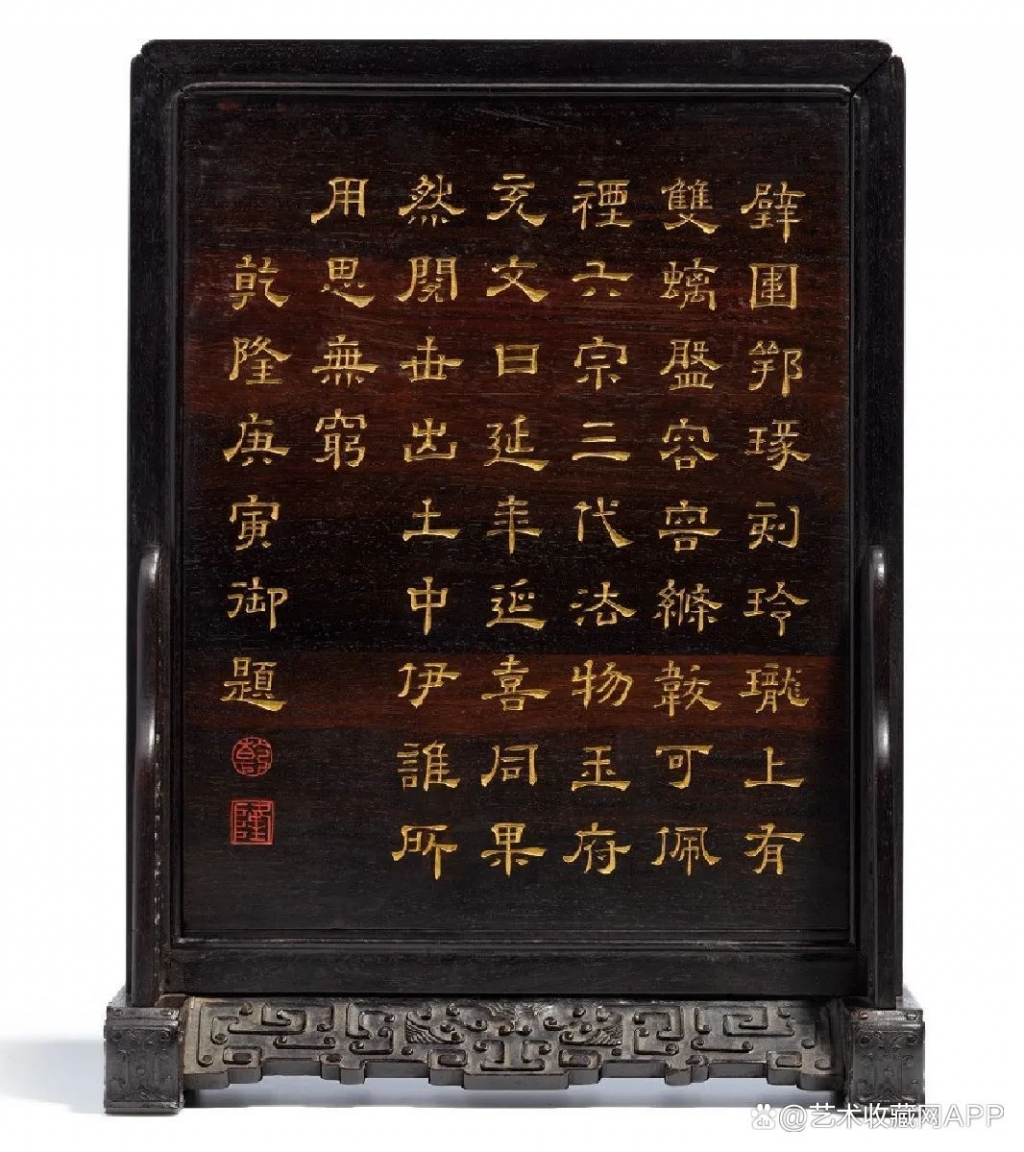 璧圍瑑刻玲瓏上有
雙螭盤容容絛韍可佩
禋六宗三代法物玉府
充文曰延年延喜同果
然閱世出土中伊誰所
用思無窮
乾隆庚寅御題
乾
隆
@艺术收藏网APP